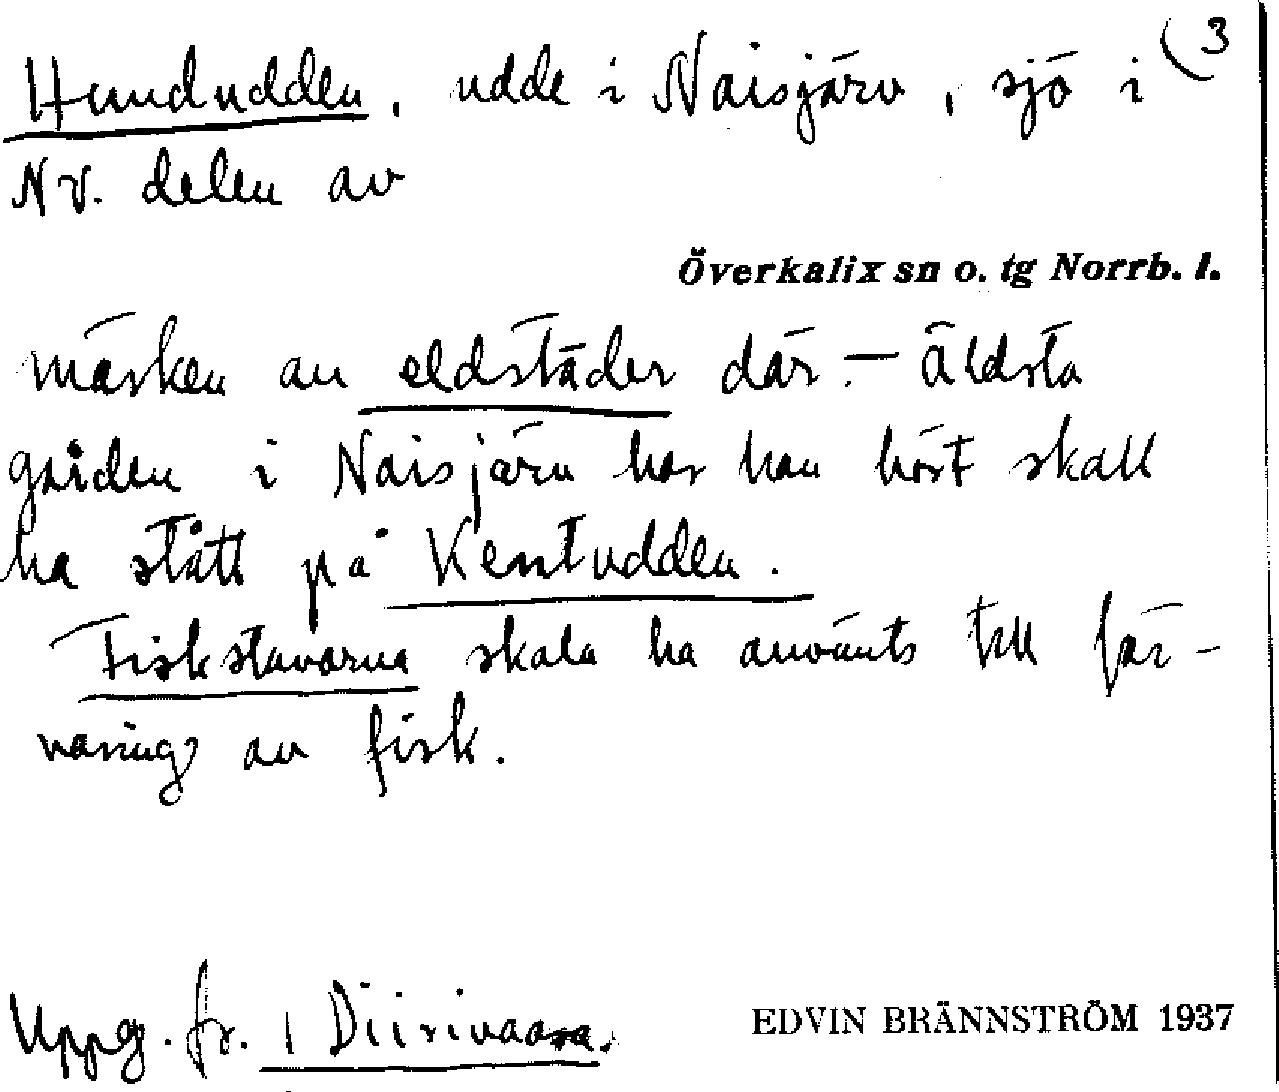 (3
Hundudden, udde i Naisjärv, sjö i
NV. delen av
Överkalix sn o. tg Norrb. l.
märken av eldstäder där. – Äldsta
gården i Naisjärv har han hört skall
ha stått på Kentudden.
Fiskstavarna skola ha använts till för-
varing av fisk.
Uppg. fr. i Diirivaara.
EDVIN BRÄNNSTRÖM 1937